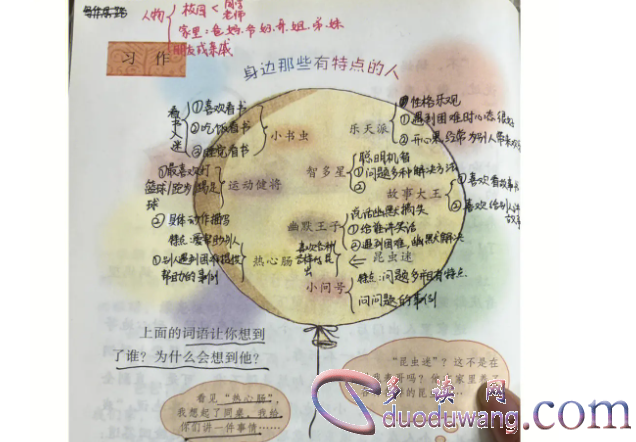 人物
校园
同学
老师
家里：爸、妈、爷、奶、哥、姐、弟、妹
朋友或亲戚
习作
身边那些有特点的人
看书入迷
①喜欢看书
②吃饭看书
③睡觉看书
小书虫
乐天派
①性格乐观
①遇到困难时心态很好
智多星
聪明机智
①问题多种解决方法
②
①最喜欢打
篮球/跑步/踢足
球
运动健将
②具体动作描写
故事大王
①喜欢看故事
②喜欢给别人讲
故事
幽默王子
说话幽默搞笑
①给谁讲笑话
②遇到困难，幽默解决
特点：爱帮助别人
①别人遇到困难提供
帮助的事例
热心肠
昆虫迷
小问号
特点：问题多
问问题的事例
上面的词语让你想到
了谁？为什么会想到他？
看见“热心肠”，
我想起了同桌，我给
你们讲一件事情……
“昆虫迷”？这不是在
多读网
duoduwang.com